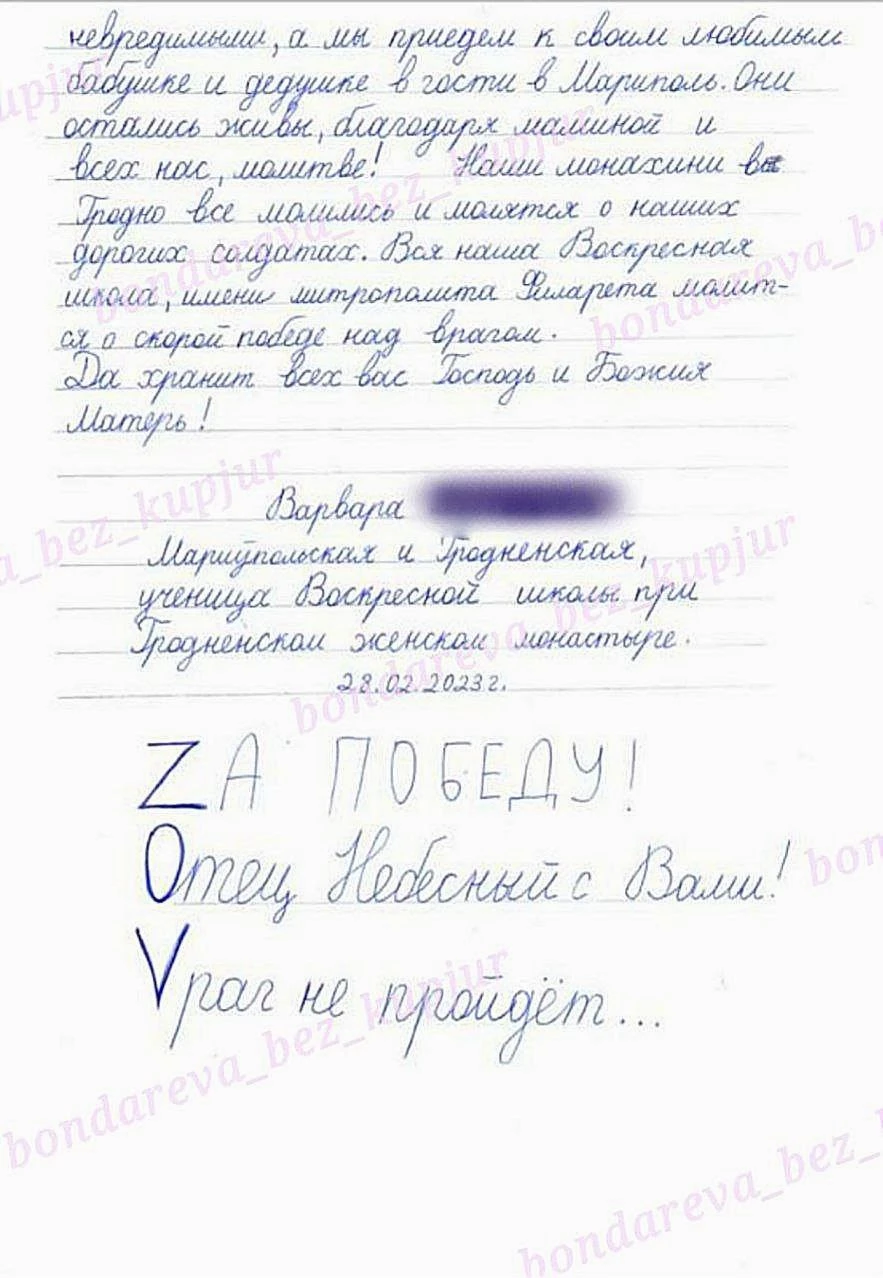 невредимыми, а мы приедем к своим любимым
бабушке и дедушке в гости в Мариполь. Они
остались живы, благодаря маминой и
всех нас, молитве! Наши монахини в
Гродно все молились и молятся о наших
дорогих солдатах. Вся наша Воскресная
школа, имени митрополита Филарета молит-
ся о скорой победе над врагом.
Да хранит всех вас Господь и Божия
Матерь!
Варвара
Мариупольская и Гродненская,
ученица Воскресной школы при
Гродненском женском монастыре.
28.02.2023г.
ZА ПОБЕДУ!
Отец Небесный с Вами!
Vраг не пройдёт...
bondareva_bez_kupjur